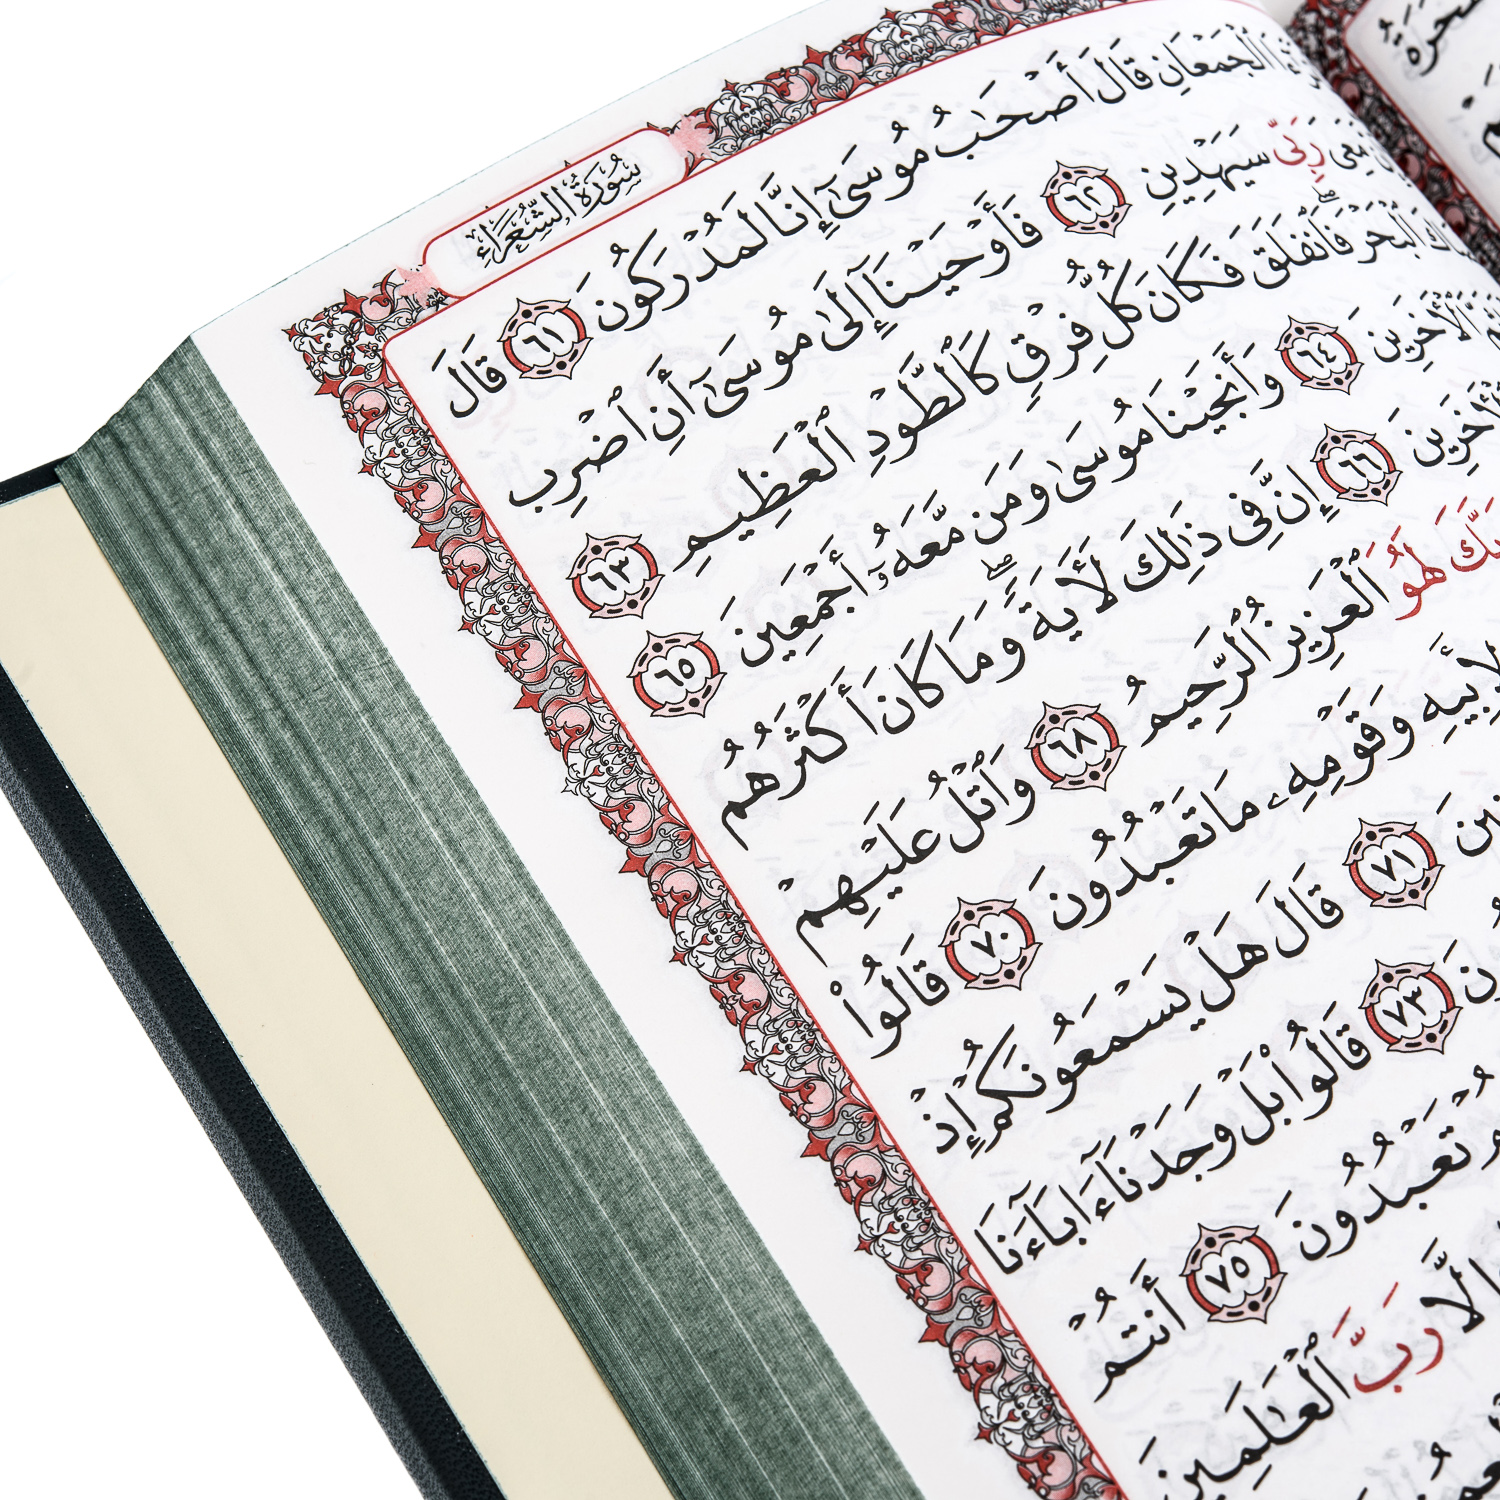 سُورَةُ الشُّعَرَاءِ
ٱلْجَمْعَانِ قَالَ أَصْحَٰبُ مُوسَىٰٓ إِنَّا لَمُدْرَكُونَ ٦١ قَالَ
مَعِىَ رَبِّى سَيَهْدِينِ ٦٢ فَأَوْحَيْنَآ إِلَىٰ مُوسَىٰٓ أَنِ ٱضْرِب
ٱلْبَحْرَ ۖ فَٱنفَلَقَ فَكَانَ كُلُّ فِرْقٍ كَٱلطَّوْدِ ٱلْعَظِيمِ ٦٣
ٱلْأَخَرِينَ ٦٤ وَأَنجَيْنَا مُوسَىٰ وَمَن مَّعَهُۥٓ أَجْمَعِينَ ٦٥
ٱلْأَخَرِينَ ٦٦ إِنَّ فِى ذَٰلِكَ لَأَيَةً ۖ وَمَا كَانَ أَكْثَرُهُم
رَبَّكَ لَهُوَ ٱلْعَزِيزُ ٱلرَّحِيمُ ٦٨ وَٱتْلُ عَلَيْهِمْ
لِأَبِيهِ وَقَوْمِهِۦ مَا تَعْبُدُونَ ٧٠ قَالُوا۟
٧١ قَالَ هَلْ يَسْمَعُونَكُمْ إِذْ
٧٣ قَالُوا۟ بَلْ وَجَدْنَآ ءَابَآءَنَا
تَعْبُدُونَ ٧٥ أَنتُمْ
إِلَّا رَبَّ ٱلْعَٰلَمِينَ